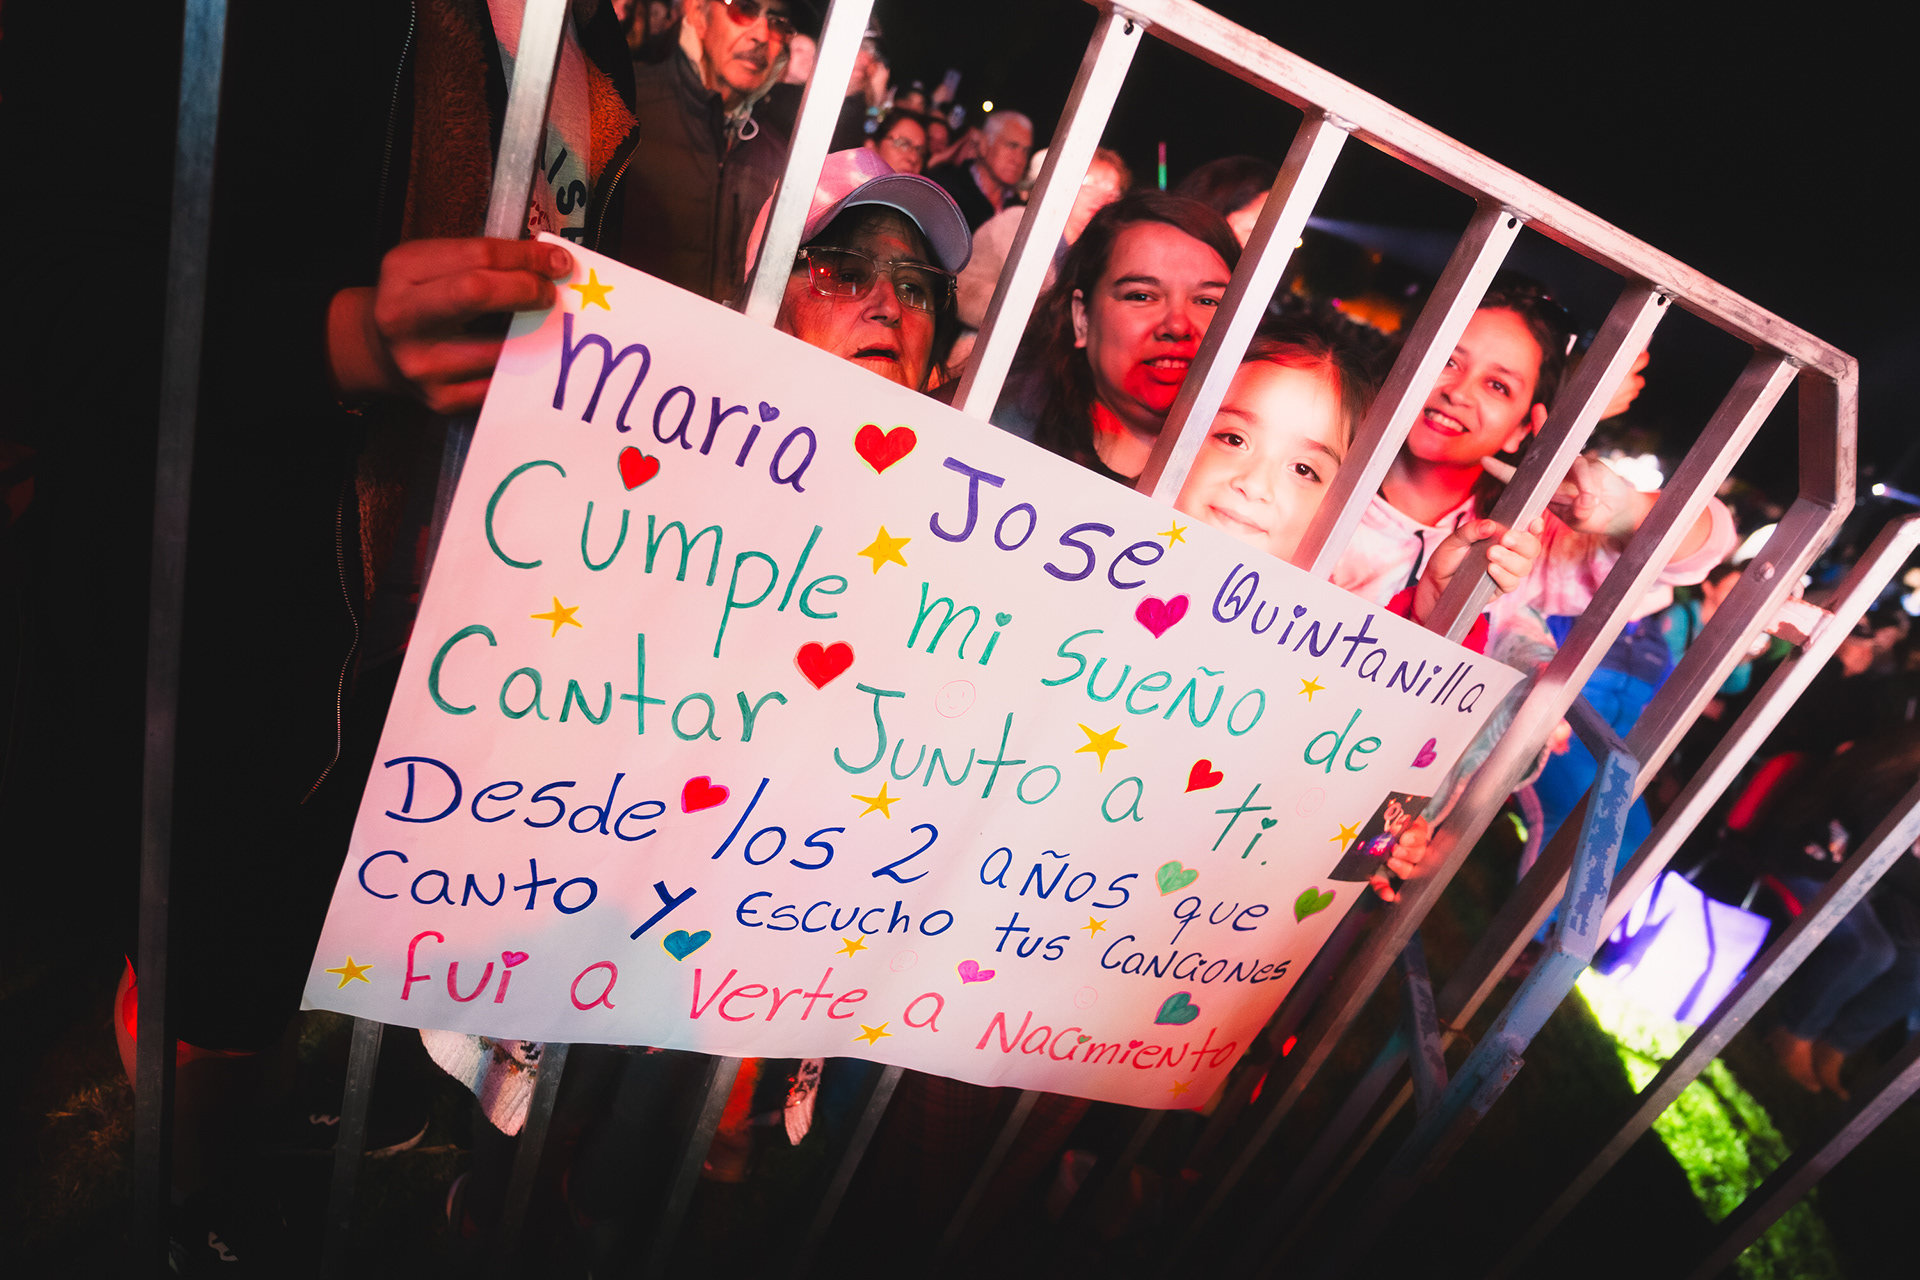 Maria Jose Quintanilla
Cumple mi sueño de
Cantar Junto a ti.
Desde los 2 años que
canto y Escucho tus canciones
fui a verte a Nacimiento